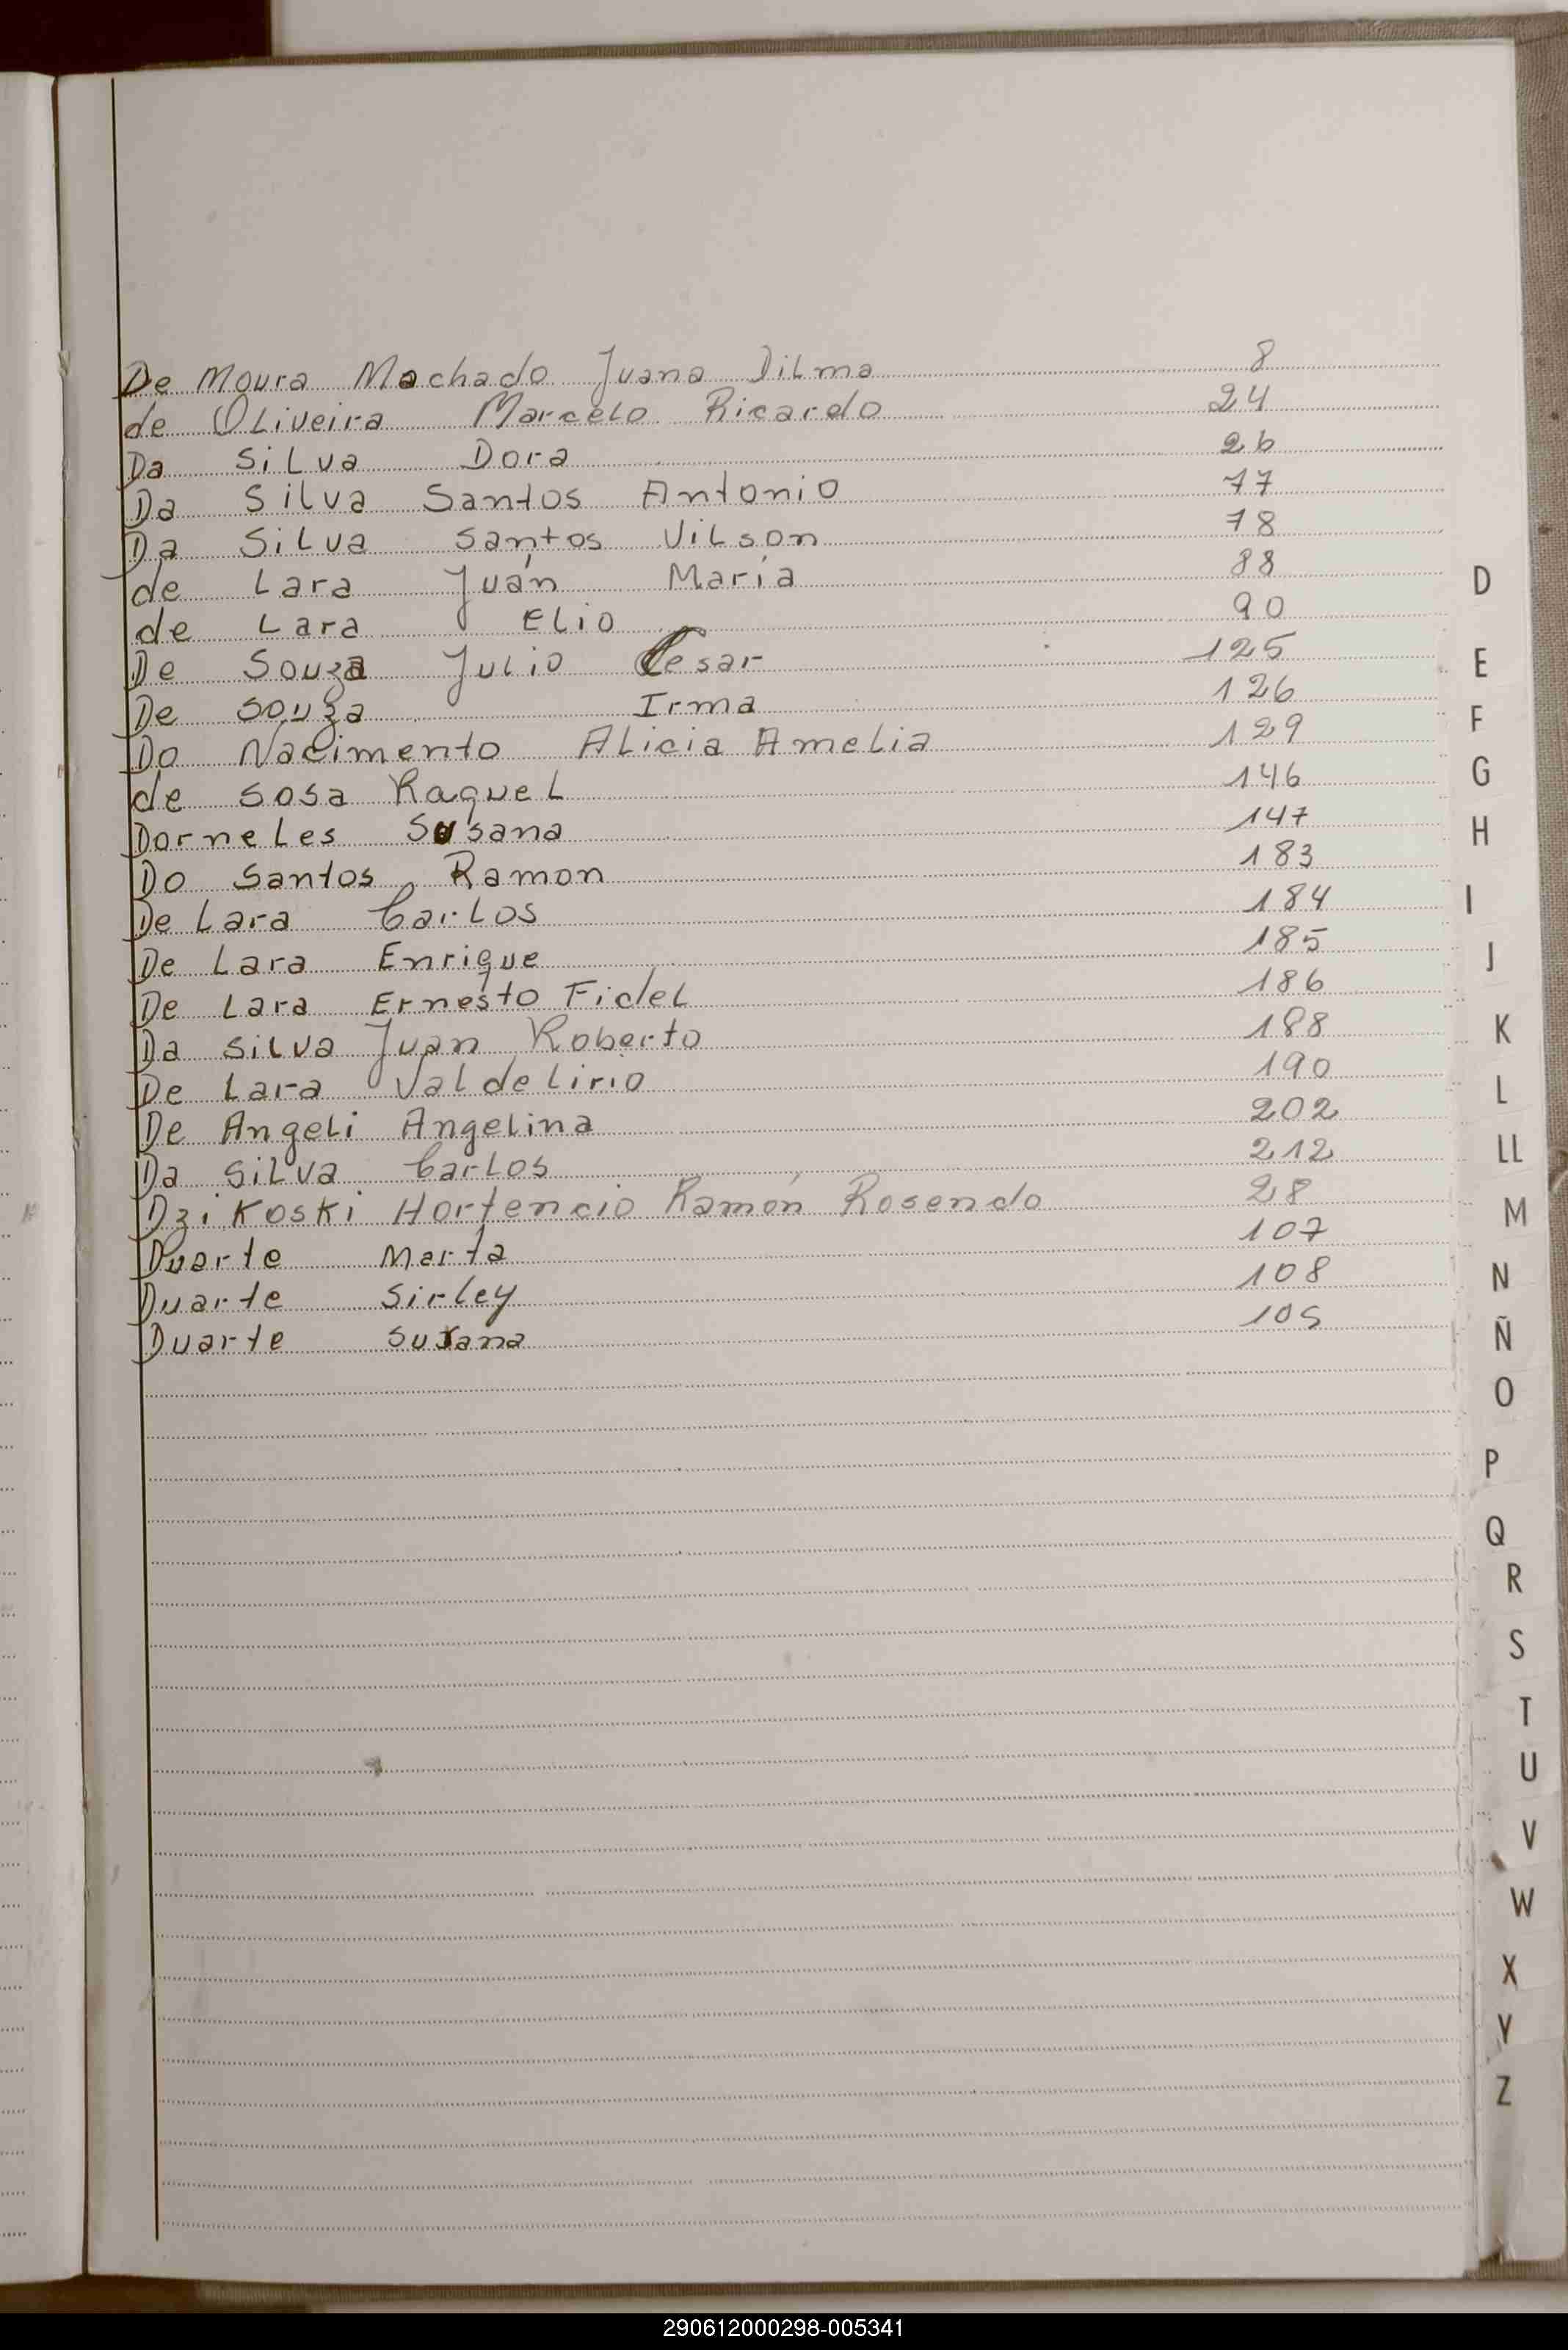 De Moura Machado Juana Dilma 8
de Oliveira Marcelo Ricardo 24
Da Silva Dora 26
Da Silva Santos Antonio 77
Da Silva Santos Vilson 78
de Lara Juán María 88
de Lara Elio 90
De Souza Julio Cesar 125
De Souza Irma 126
Do Nacimento Alicia Amelia 129
de Sosa Raquel 146
Dorneles Susana 147
Do Santos Ramon 183
De Lara Carlos 184
De Lara Enrique 185
De Lara Ernesto Fidel 186
Da Silva Juan Roberto 188
De Lara Valdelirio 190
De Angeli Angelina 202
Da Silva Carlos 212
Dzikoski Hortencio Ramón Rosendo 28
Duarte Marta 107
Duarte Sirley 108
Duarte Susana 105
D
E
F
G
H
I
J
K
L
LL
M
N
Ñ
O
P
Q
R
S
T
U
V
W
X
Y
Z
290612000298-005341